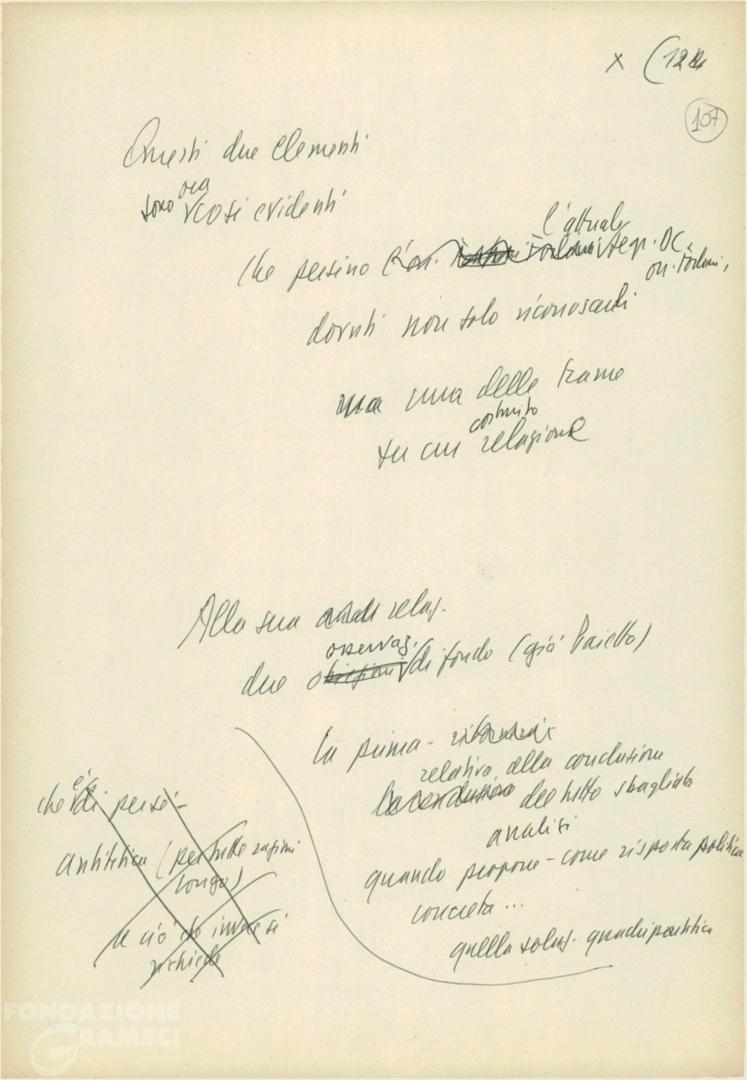 x (124
107
Questi due elementi
sono ora così evidenti
che persino l'on. Forlani l'attuale segr. DC,
on. Forlani,
dovuti non solo riconoscerli
ma una delle trame
su cui costruito relazione
Alla sua relaz.
due obiezioni osservaz. di fondo (già Paietta)
la prima -
relativa alla conclusione
la conclusione del tutto sbagliata
analisi
quando propone - come risposta politica
concreta ...
quella soluz. quadripartitica
che è di per sé -
antitetica (per tutte ragioni
Longo)
a ciò che invece si
richiede
FONDAZIONE
GRAMSCI